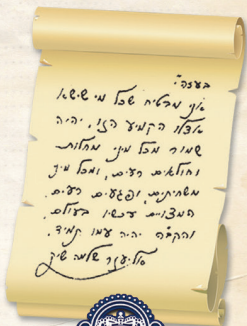 בעזה"י
אני מבטיח שכל מי שישא
אצלו הקמיע הזו, יהיה
שמור מכל מיני מחלות
וחולאים רעים, ומכל מיני
משחיתים, ופגעים רעים.
המצויים עכשיו בעולם.
והקב"ה יהיה עמו תמיד.
אליעזר שלמה שיק